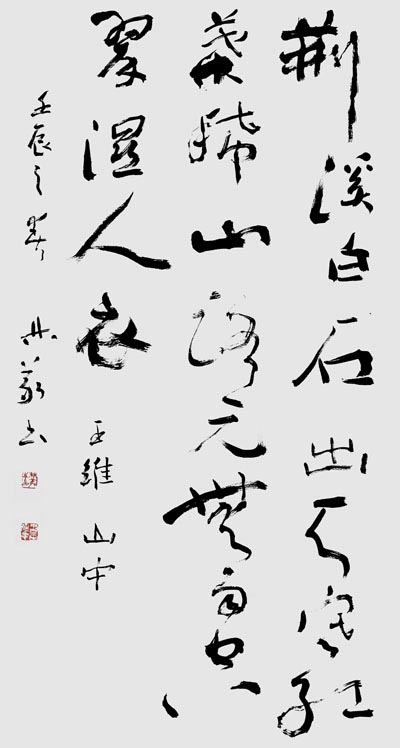 荆溪白石出天寒红
葉稀山路元無雨空
翠濕人衣 王維 山中
壬辰之 书